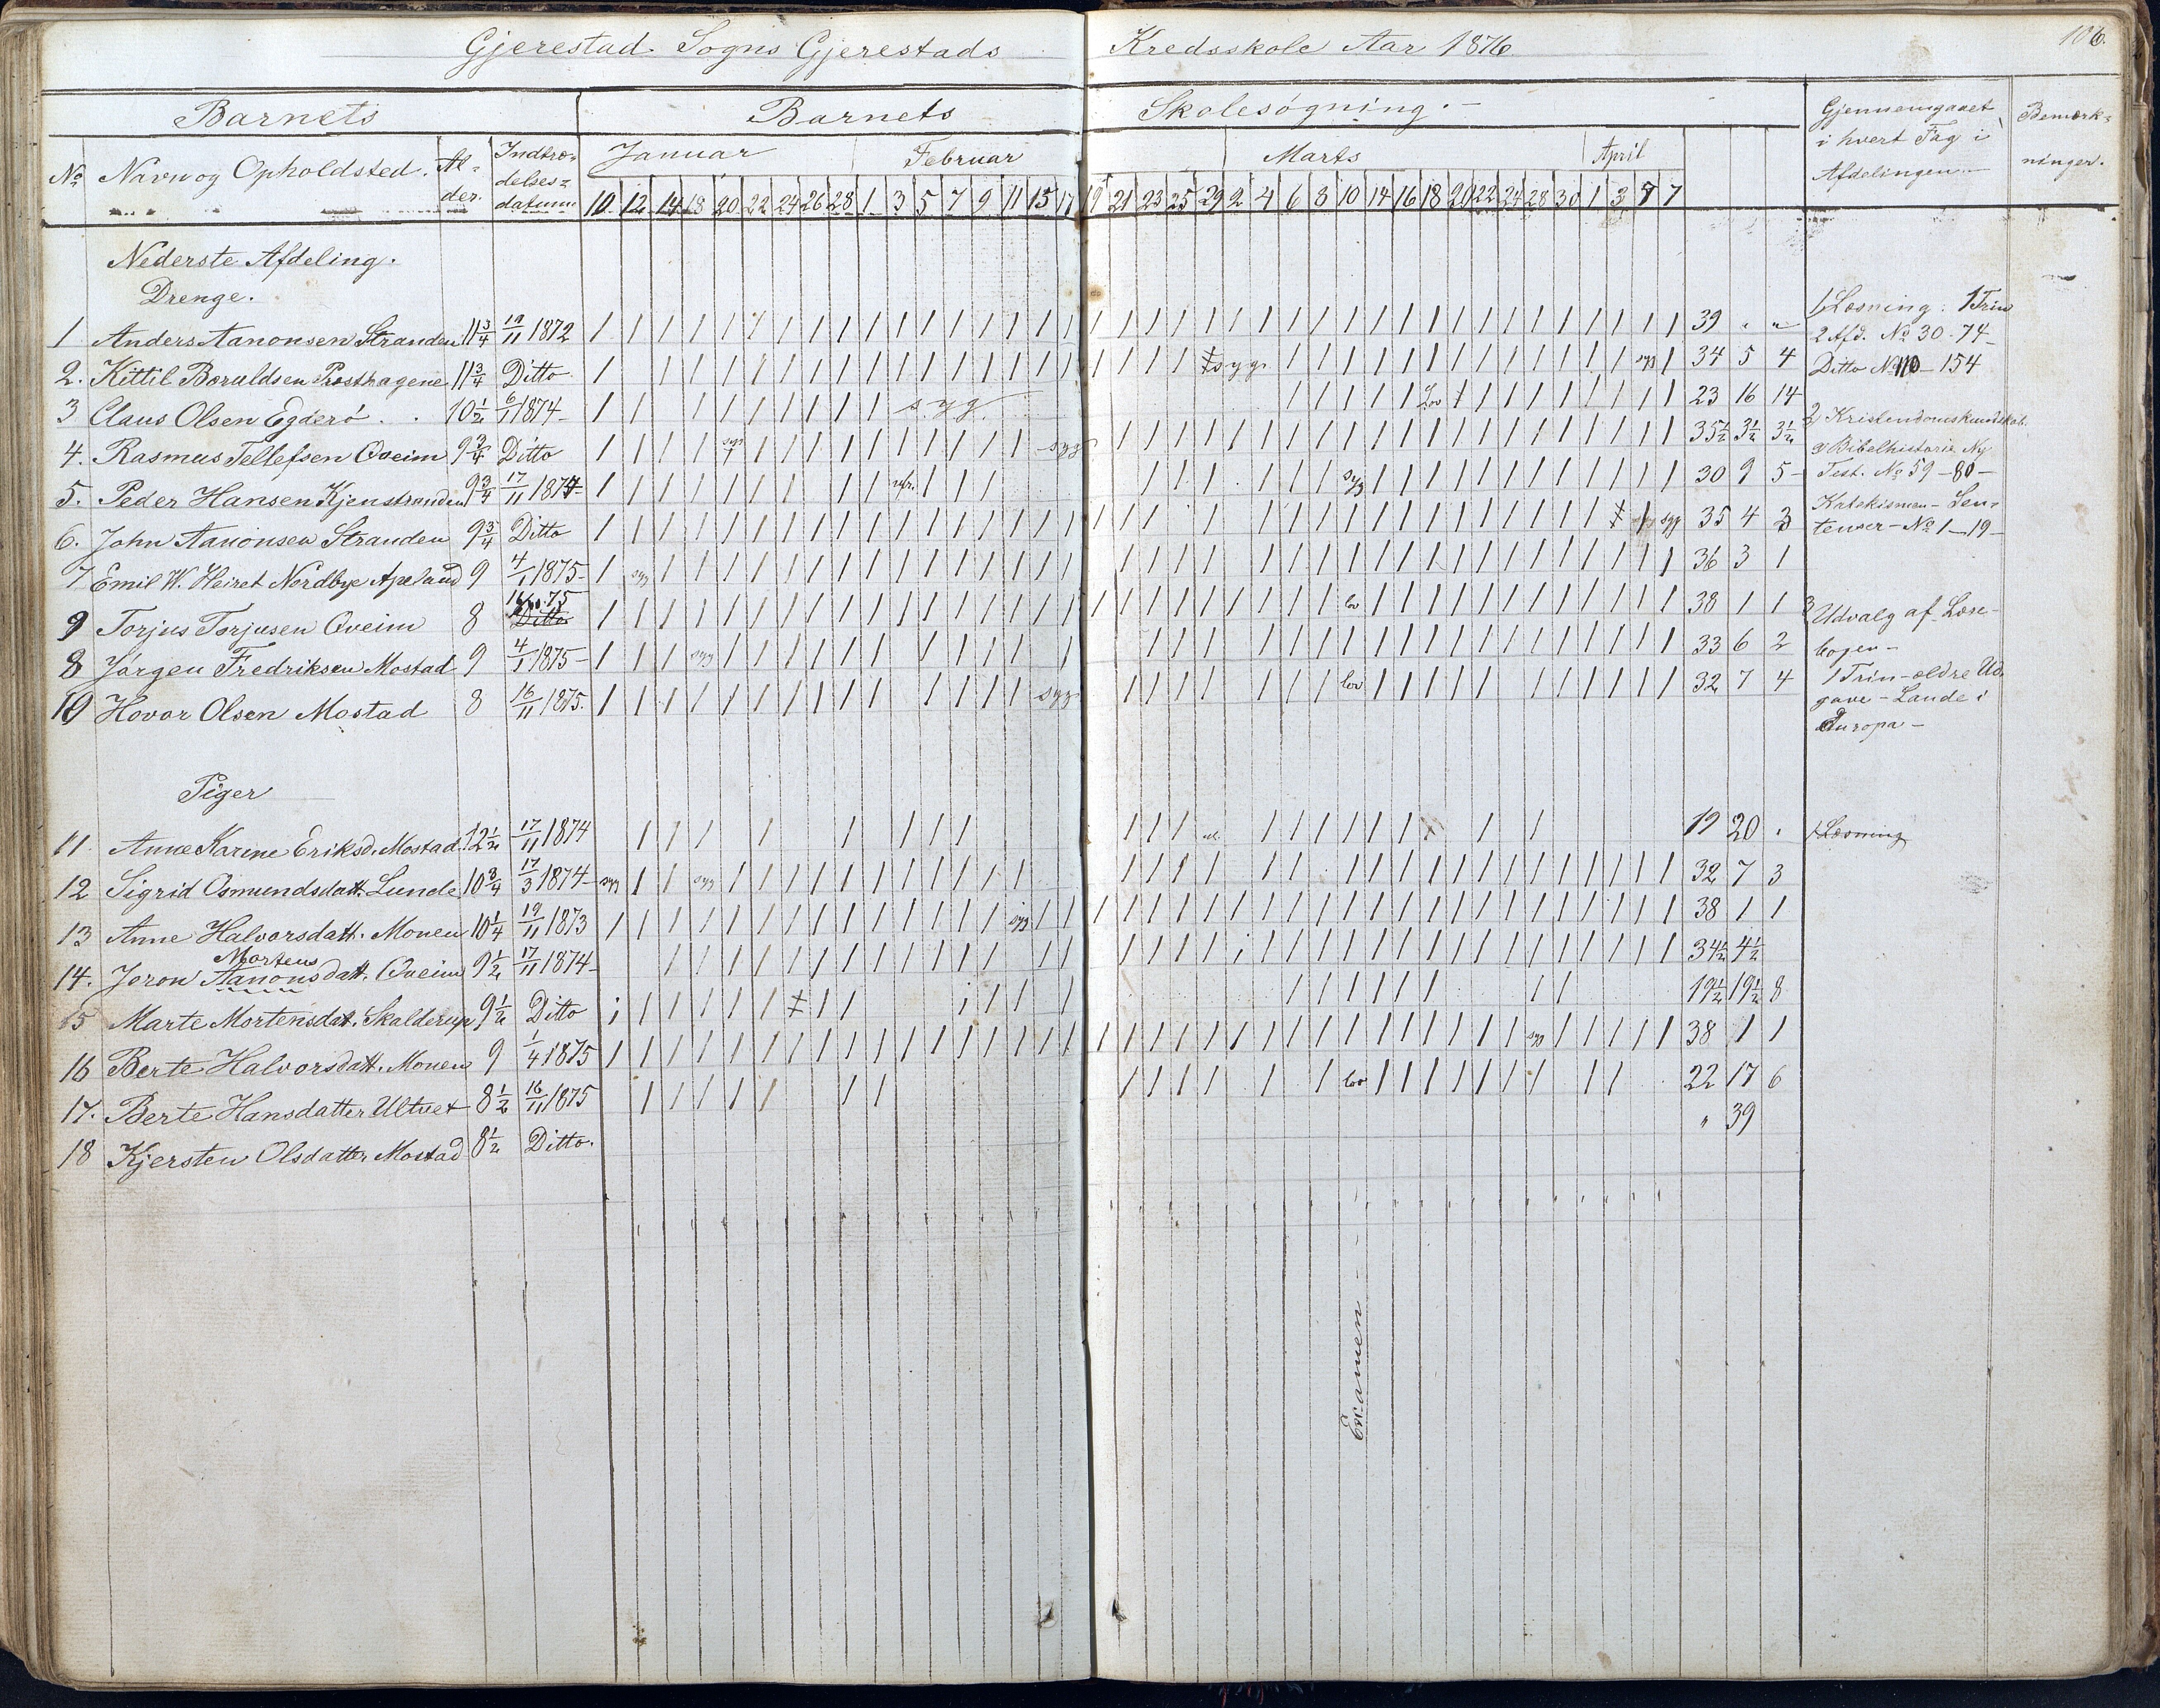 Gjerestad Sogns Gjerestads Kredsskole Aar 1876. 106.
Barnets Barnets Skolesøgning. Gjennemgaaet i hvert Fag i Afdelingen Bemærkninger.
No Navn og Opholdsted. Alder. Indtrædelsesdatum Januar Februar Marts April
10 12 14 18 20 22 24 26 28 1 3 5 7 9 11 15 17 19 21 23 25 29 2 4 6 8 10 14 16 18 20 22 24 28 30 1 3 7
Nederste Afdeling.
Drenge.
1 Anders Aanonsen Stranden 11 3/4 19/11 1872 39 " "
2. Kittil Boruldsen Prosthagene 11 3/4 Ditto syg syg 34 5 4
3 Claus Olsen Egderó 10 1/2 6/1 1874 syg lov 23 16 14
4. Rasmus Tellefsen Qveim 9 3/4 Ditto syg syg 35 1/2 3 1/2 3 1/2
5. Peder Hansen Kjenstranden 9 3/4 17/11 1874 syg 30 9 5
6. John Aanonsen Stranden 9 3/4 Ditto syg 35 4 3
7 Emil W. Heiret Nordbye Apeland 9 4/1 1875 syg 36 3 1
9 Torjus Torjusen Qveim 8 Ditto lov 38 1 1
8 Jörgen Fredriksen Mostad 9 4/1 1875 syg 33 6 2
10 Hovar Olsen Mostad 8 16/11 1875. syg lov 32 7 4
Piger
11. Anne Karine Eriksd. Mostad 12 1/2 17/11 1874 19 20
12 Sigrid Osmundsdatt. Lunde 10 3/4 17/3 1874 syg syg 32 7 3
13 Anne Halvorsdatt. Monen 10 1/4 19/11 1873 syg 38 1 1
Mortens
14. Joron Aanonsdatt. Qveim 9 1/2 17/11 1874 34 1/2 4 1/2
15 Marte Mortensdat. Skalderup 9 1/2 Ditto 19 1/2 19 1/2 8
16 Berte Halvorsdatt. Monen 9 1/4 1875 syg 38 1 1
17. Berte Hansdatter Ultvet 8 1/2 16/11 1875 lov 22 17 6
18 Kjersten Olsdatter Mostad 8 1/2 Ditto. " 39
1, Læsning: 1 Trin
2 Afd. No 30-74
Ditto No 110-154
2, Kristendomskundskab.
Bibelhistorie Ny
Test. No 59-80-
Katekismen- Sen-
tenser- No 1-19-
3 Udvalg af Læse-
bogen-
1 Trin- ældre Ud-
gave- Lande i
Europa-
1 Læsning
Examen